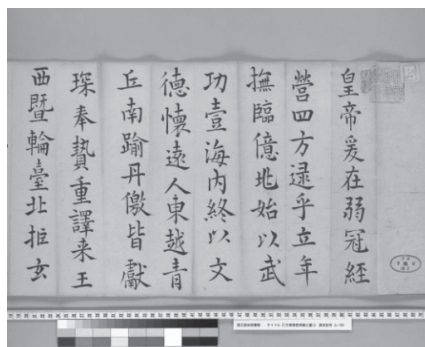 皇帝爰在弱冠經
營四方逮乎立年
撫臨億兆始以武
功壹海内終以文
德懷遠人東越青
丘南踰丹徼皆獻
琛奉贄重譯来王
西暨輪臺北拒玄